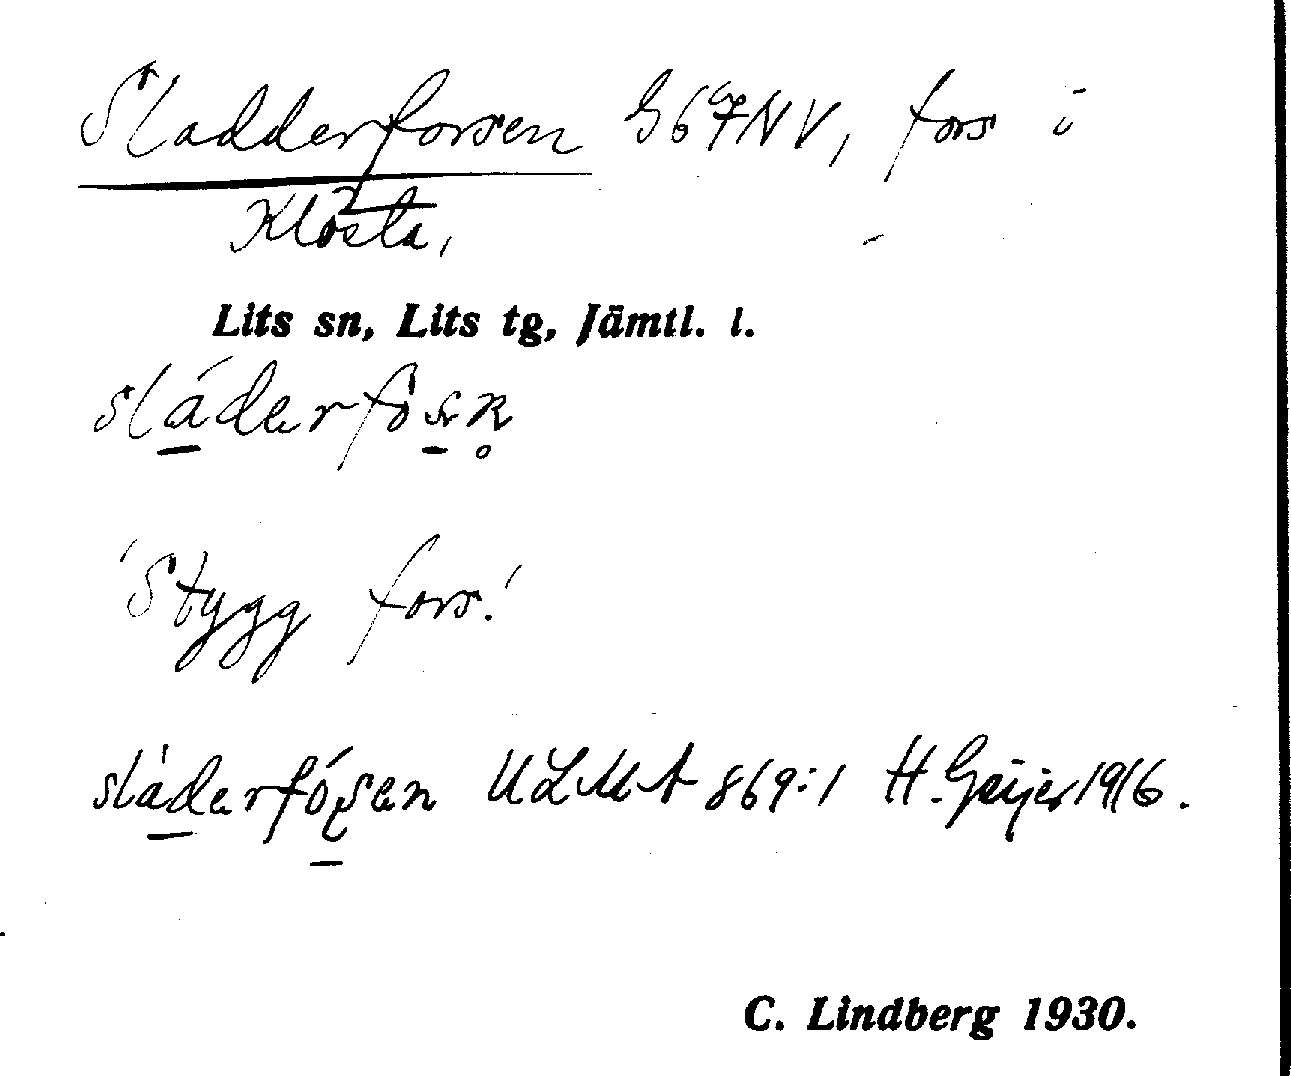 Sladderforsen G67NV, fors i
Klösta,
Lits sn, Lits tg, Jämtl. l.
sláderfòsn̥
'Stygg fors.'
sláderfósen ULMA 869:1 H. Geijer 1916.
C. Lindberg 1930.